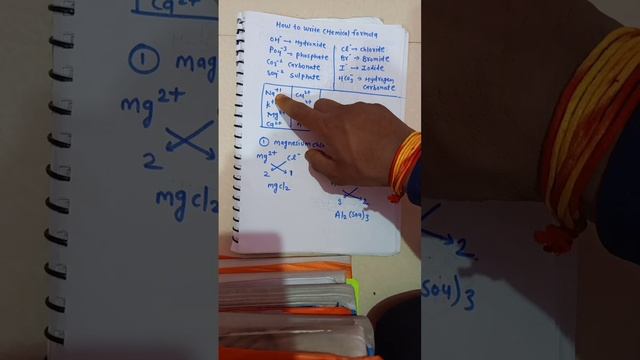 How to write chemical formula
OH⁻ → Hydroxide
PO₄⁻³ → phosphate
CO₃⁻² Carbonate
SO₄⁻² Sulphate
Cl⁻ → chloride
Br⁻ → Bromide
I⁻ → Iodide
HCO₃⁻ → Hydrogen
Carbonate
Na⁺¹
K⁺
Mg
Ca²⁺
① magnesium
Mg²⁺ Cl⁻
2 1
mgCl₂
3 2
Al₂(SO₄)₃
① mg²⁺
2
mgCl₂
2
SO₄)₃